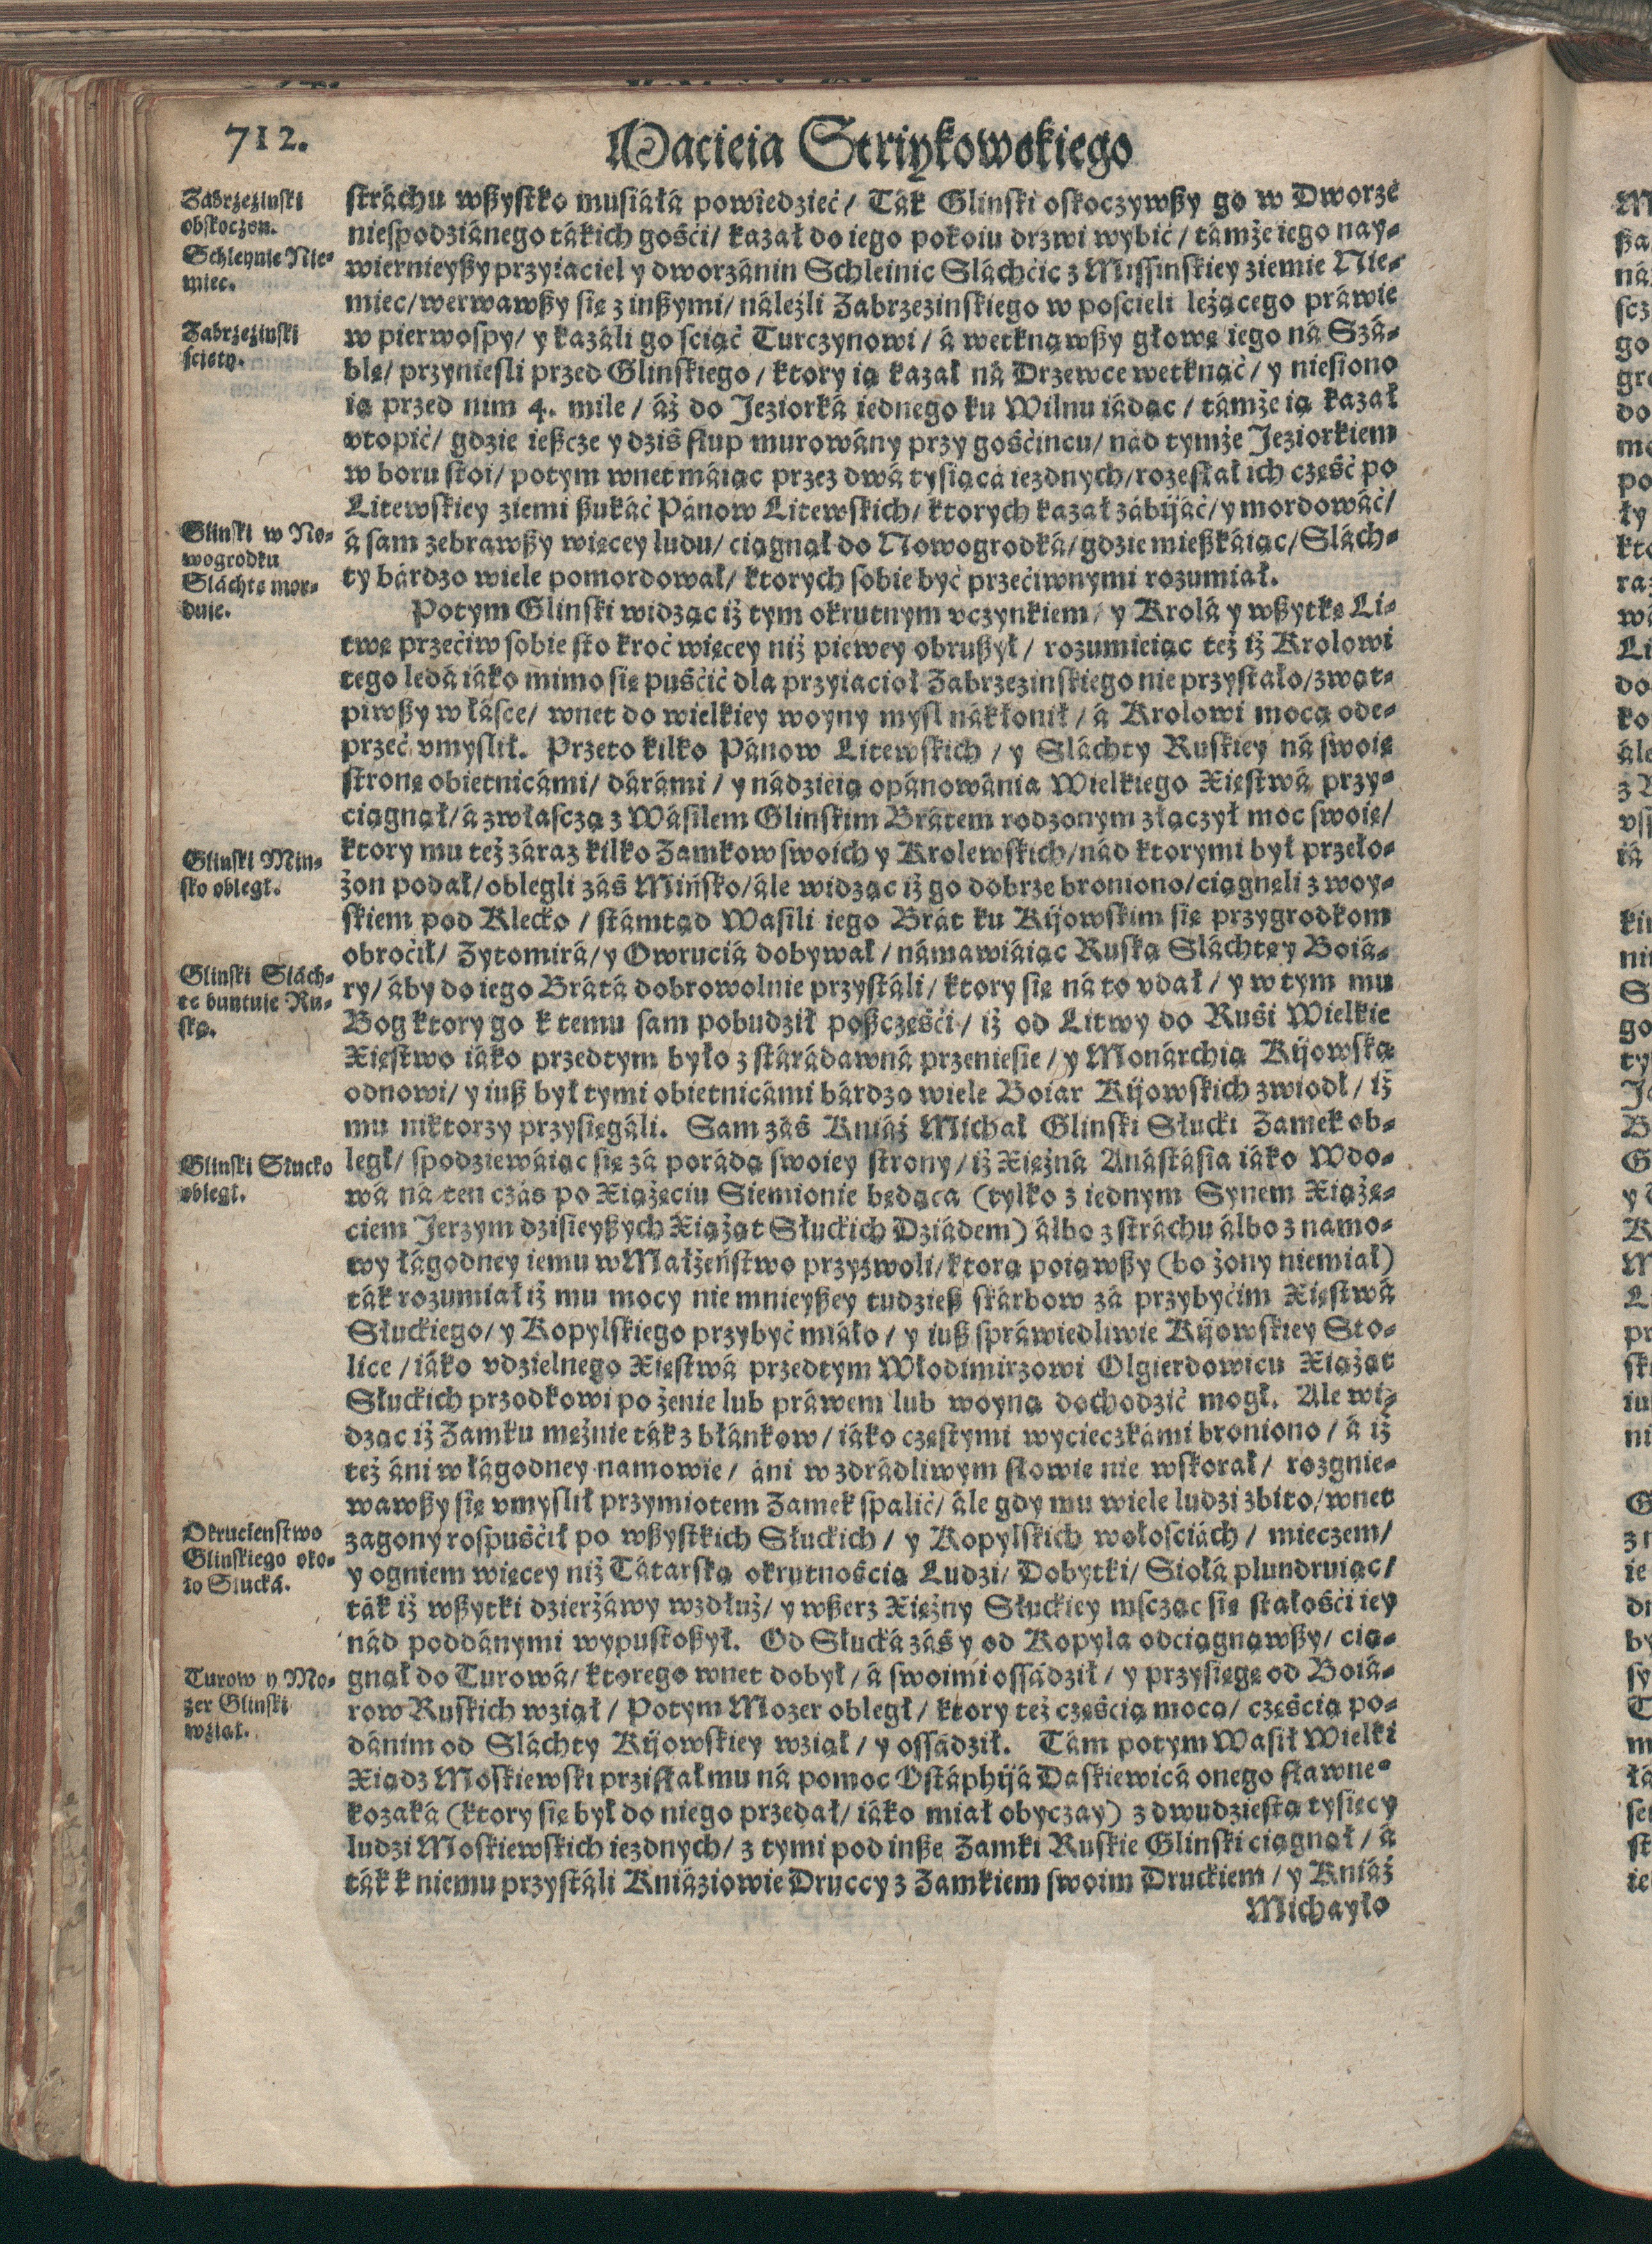 712.
Macieia Striykowskiego
Zabrzezinski
obskoczon.
Schleynic Nie-
miec.
Zabrzezinski
sciety.
Glinski w No-
wogrodku
Sláchtę mor-
duie.
Glinski Min-
sko obległ.
Glinski Slách-
tę buntuie Ru-
ską.
Glinski Słucko
obległ.
Okrucienstwo
Glinskiego oko-
ło Słucká.
Turow y Mo-
zer Glinski
wziął.
stráchu wßystko musiáłá powiedzieć / Ták Glinski oskoczywßy go w Dworze
niespodziánego tákich gośći / kazał do iego pokoiu drzwi wybić / támże iego nay-
wiernieyßy przyiaciel y dworzánin Schleinic Sláchćic z Missinskiey ziemie Nie-
miec / werwawßy się z inßymi / náleźli Zabrzezinskiego w poscieli leżącego práwie
w pierwospy / y kazáli go sciąć Turczynowi / á wetknąwßy głowę iego ná Szá-
blę / przyniesli przed Glinskiego / ktory ią kazał ná Drzewce wetknąć / y niesiono
ią przed nim 4. mile / áż do Jeziorká iednego ku Wilnu iádąc / támże ią kazał
vtopić / gdzie ießcze y dziś słup murowány przy gośćincu / nád tymże Jeziorkiem
w boru stoi / potym wnet máiąc przez dwá tysiącá iezdnych / rozesłał ich część po
Litewskiey ziemi ßukáć Pánow Litewskich / ktorych kazał zábijáć / y mordowáć /
á sam zebrawßy więcey ludu / ciągnął do Nowogrodká / gdzie mießkáiąc / Slách-
ty bárdzo wiele pomordował / ktorych sobie być przećiwnymi rozumiał.
Potym Glinski widząc iż tym okrutnym vczynkiem / y Krolá y wßytkę Li-
twę przećiw sobie sto kroć więcey niż piewey obrußył / rozumieiąc też iż Krolowi
tego ledá iáko mimo się puśćić dla przyiacioł Zabrzezinskiego nie przystało / zwąt-
piwßy w łásce / wnet do wielkiey woyny mysl nákłonił / á Krolowi mocą ode-
przeć vmyslił. Przeto kilko Pánow Litewskich / y Sláchty Ruskiey ná swoię
stronę obietnicámi / dárámi / y nádzieią opánowánia Wielkiego Xięstwá przy-
ciągnął / á zwłasczá z Wásilem Glinskim Brátem rodzonym złączył moc swoię /
ktory mu też záraz kilko Zamkow swoich y Krolewskich / nád ktorymi był przeło-
żon podał / oblegli záś Mińsko / ále widząc iż go dobrze broniono / ciągnęli z woy-
skiem pod Klecko / stámtąd Wasili iego Brát ku Kijowskim się przygrodkom
obroćił / Zytomirá / y Owruciá dobywał / námawiáiąc Ruską Sláchtę y Boiá-
ry / áby do iego Brátá dobrowolnie przystáli / ktory się ná to vdał / y w tym mu
Bog ktory go k temu sam pobudził poßczęśći / iż od Litwy do Ruśi Wielkie
Xięstwo iáko przedtym było z stárádawná przeniesie / y Monárchią Kijowską
odnowi / y iuß był tymi obietnicámi bárdzo wiele Boiar Kijowskich zwiodł / iż
mu niktorzy przysięgáli. Sam záś Kniáź Michał Glinski Słucki Zamek ob-
legł / spodziewáiąc się zá porádą swoiey strony / iż Xiężná Anástásia iáko Wdo-
wá ná ten czás po Xiążęciu Siemionie będąca (tylko z iednym Synem Xiążę-
ciem Jerzym dzisieyßych Xiążąt Słuckich Dziádem) álbo z stráchu álbo z namo-
wy łágodney iemu w Małżeństwo przyzwoli / ktorą poiąwßy (bo żony niemiał)
ták rozumiał iż mu mocy nie mnieyßey tudzieß skárbow zá przybyćim Xięstwá
Słuckiego / y Kopylskiego przybyć miáło / y iuß spráwiedliwie Kijowskiey Sto-
lice / iáko vdzielnego Xięstwá przedtym Włodimirzowi Olgierdowicu Xiążąt
Słuckich przodkowi po żenie lub práwem lub woyną dochodzić mogł. Ale wi-
dząc iż Zamku mężnie ták z błánkow / iáko częstymi wycieczkámi broniono / á iż
też áni w łágodney namowie / áni w zdrádliwym słowie nie wskorał / rozgnie-
wawßy się vmyslił przymiotem Zamek spalić / ále gdy mu wiele ludzi zbito / wnet
zagony rospuśćił po wßystkich Słuckich / y Kopylskich wołosciách / mieczem /
y ogniem więcey niż Tátarską okrutnością Ludzi / Dobytki / Siołá plundruiąc /
ták iż wßytki dzierżáwy wzdłuż / y wßerz Xiężny Słuckiey mscząc się stałośći iey
nád poddánymi wypustoßył. Od Słucká záś y od Kopyla odciągnąwßy / cią-
gnął do Turowá / ktorego wnet dobył / á swoimi ossádził / y przysięgę od Boiá-
row Ruskich wziął / Potym Mozer obległ / ktory też częścią mocą / częścią po-
dánim od Sláchty Kijowskiey wziął / y ossádził. Tám potym Wasił Wielki
Xiądz Moskiewski przisłał mu ná pomoc Ostáphijá Daskiewicá onego sławne°
kozaká (ktory się był do niego przedał / iáko miał obyczay) z dwudziestą tysięcy
ludzi Moskiewskich iezdnych / z tymi pod inße Zamki Ruskie Glinski ciągnął / á
ták k niemu przystáli Kniáziowie Druccy z Zamkiem swoim Druckiem / y Kniáź
Michayło